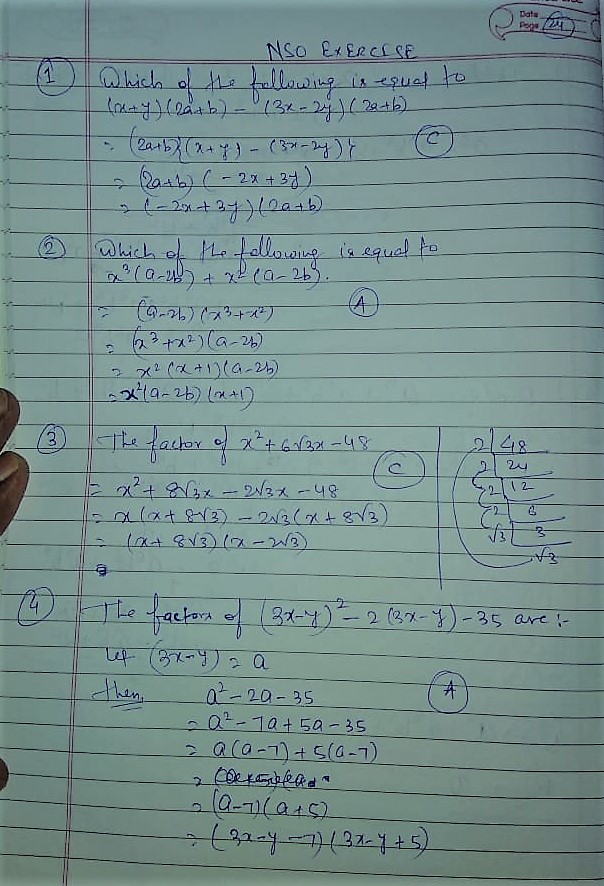 Date
Page 24
NSO EXERCISE
1 Which of the following is equal to
(x+y)(2a+b) - (3x-2y)(2a+b)
= (2a+b){(x+y) - (3x-2y)} C
= (2a+b)(-2x+3y)
= (-2x+3y)(2a+b)
2 Which of the following is equal to
x³(a-2b) + x²(a-2b).
= (a-2b)(x³+x²) A
= (x³+x²)(a-2b)
= x²(x+1)(a-2b)
= x²(a-2b)(x+1)
3 The factor of x²+6√3x-48
C
= x²+8√3x-2√3x-48
= x(x+8√3)-2√3(x+8√3)
= (x+8√3)(x-2√3)
2 48
2 24
2 12
2 6
√3 3
√3
4 The factors of (3x-y)²-2(3x-y)-35 are :-
let (3x-y) = a
then, a²-2a-35 A
= a²-7a+5a-35
= a(a-7)+5(a-7)
= (a-7)(a+5)
= (3x-y-7)(3x-y+5)